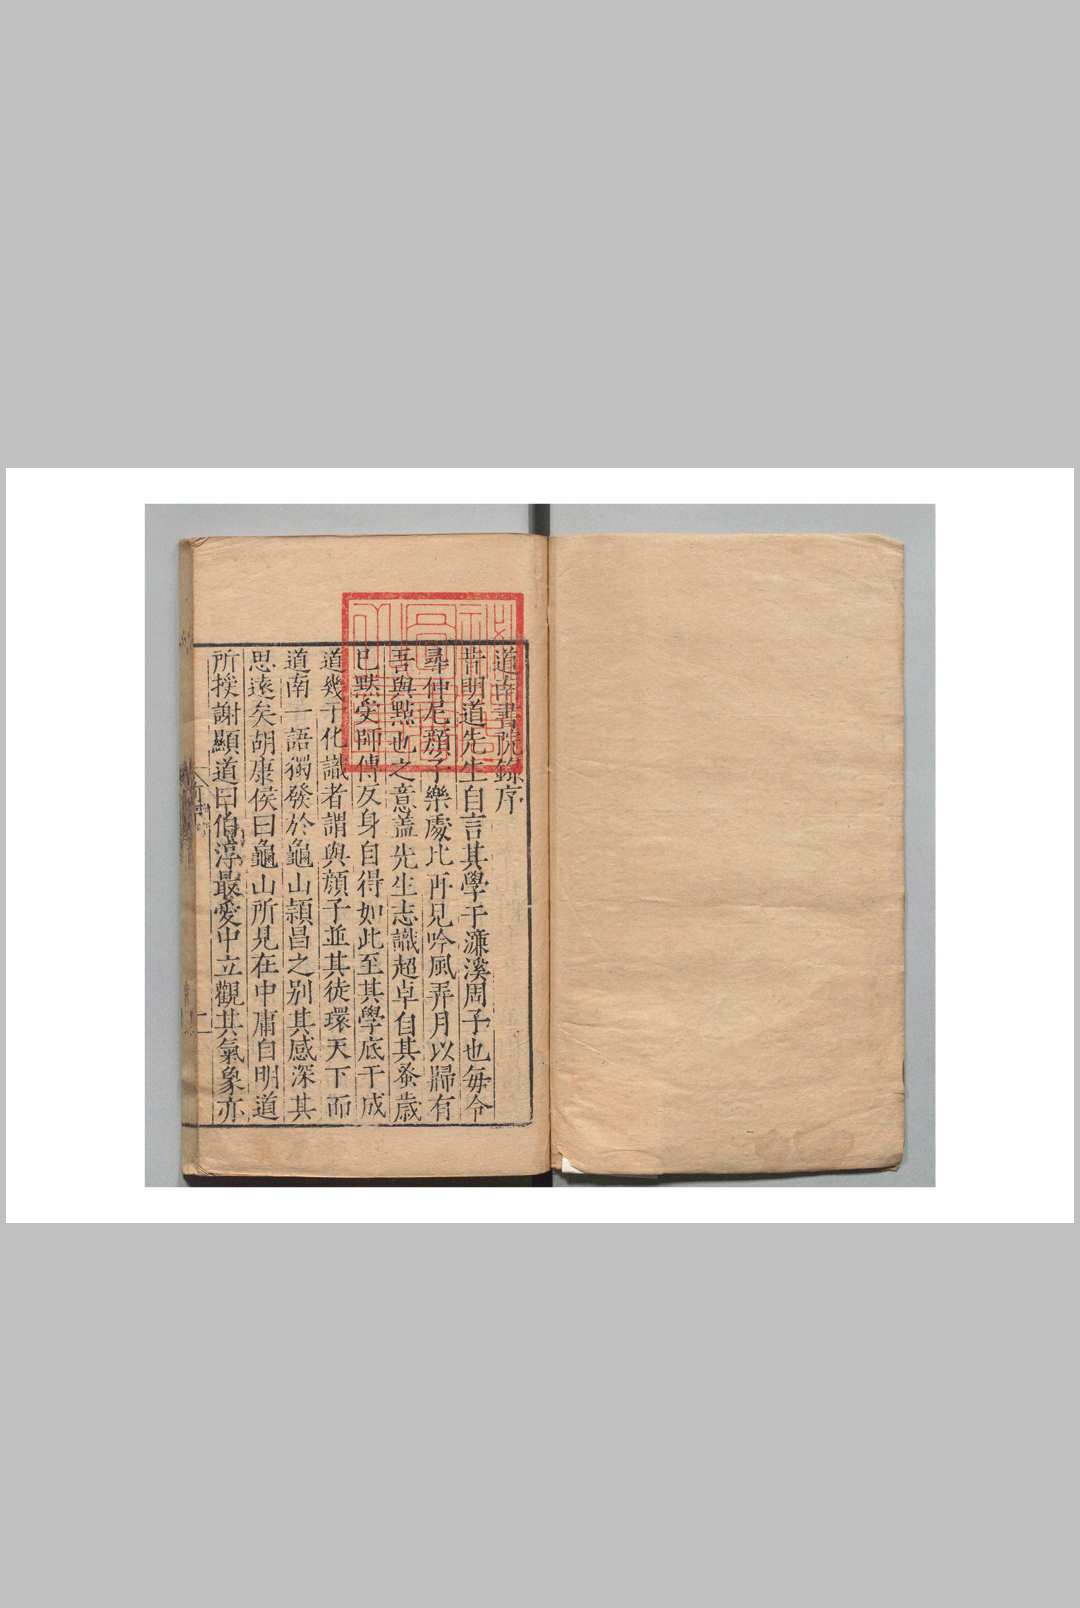 道南書院錄序
昔明道先生自言其學于濂溪周子也每令
尋仲尼顏子樂處比再見吟風弄月以歸有
吾與點也之意蓋先生志識超卓自其蚤歲
已默受師傳反身自得如此至其學底于成
道幾于化識者謂與顏子並其徒環天下而
道南一語獨發於龜山頴昌之别其感深其
思遠矣胡康侯曰龜山所見在中庸自明道
所授謝顯道曰伯淳最愛中立觀其氣象亦